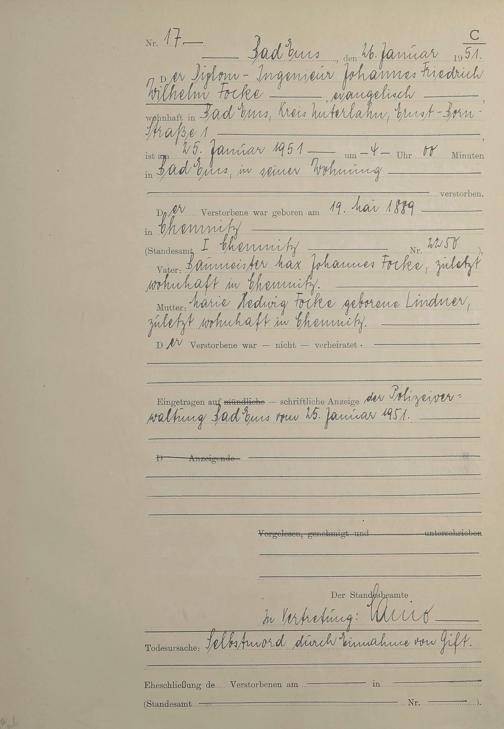 C
Nr. 17
Bad Ems, den 26. Januar 1951.
Der Diplom-Ingenieur Johannes Friedrich
Wilhelm Focke, evangelisch,
wohnhaft in Bad Ems, Kreis Unterlahn, Ernst-Born-
Straße 1
ist am 25. Januar 1951 um 4 Uhr 00 Minuten
in Bad Ems, in seiner Wohnung
verstorben.
Der Verstorbene war geboren am 19. Mai 1889
in Chemnitz
(Standesamt I Chemnitz Nr. 2250).
Vater: Baumeister Max Johannes Focke, zuletzt
wohnhaft in Chemnitz.
Mutter: Marie Hedwig Focke geborene Lindner,
zuletzt wohnhaft in Chemnitz.
Der Verstorbene war — nicht — verheiratet.
Eingetragen auf mündliche — schriftliche Anzeige der Polizeiver=
waltung Bad Ems vom 25. Januar 1951.
D Anzeigende
Vorgelesen, genehmigt und unterschrieben
Der Standesbeamte
In Vertretung:
Todesursache: Selbstmord durch Einnahme von Gift.
Eheschließung de Verstorbenen am in
(Standesamt Nr. ).